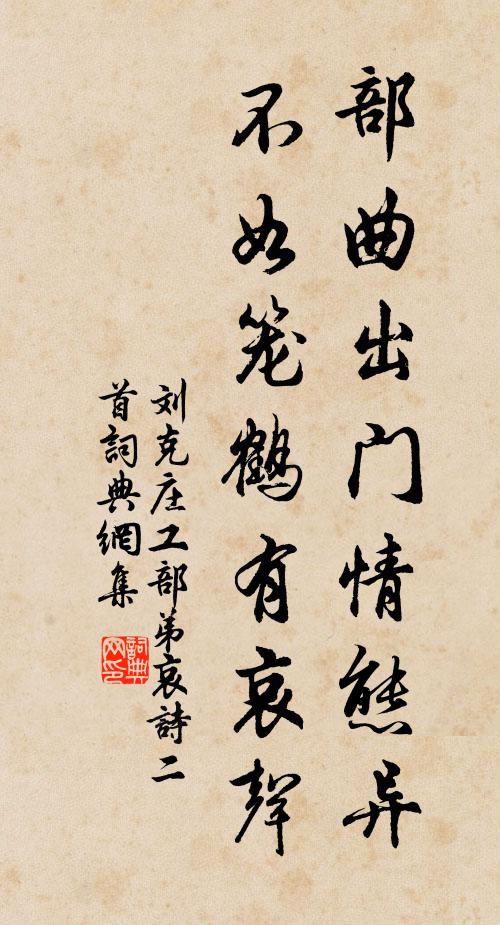 部曲出门情態异
不如笼鶴有哀聲
刘克庄工部弟哀詩二
首詞典網集
詞典
网印